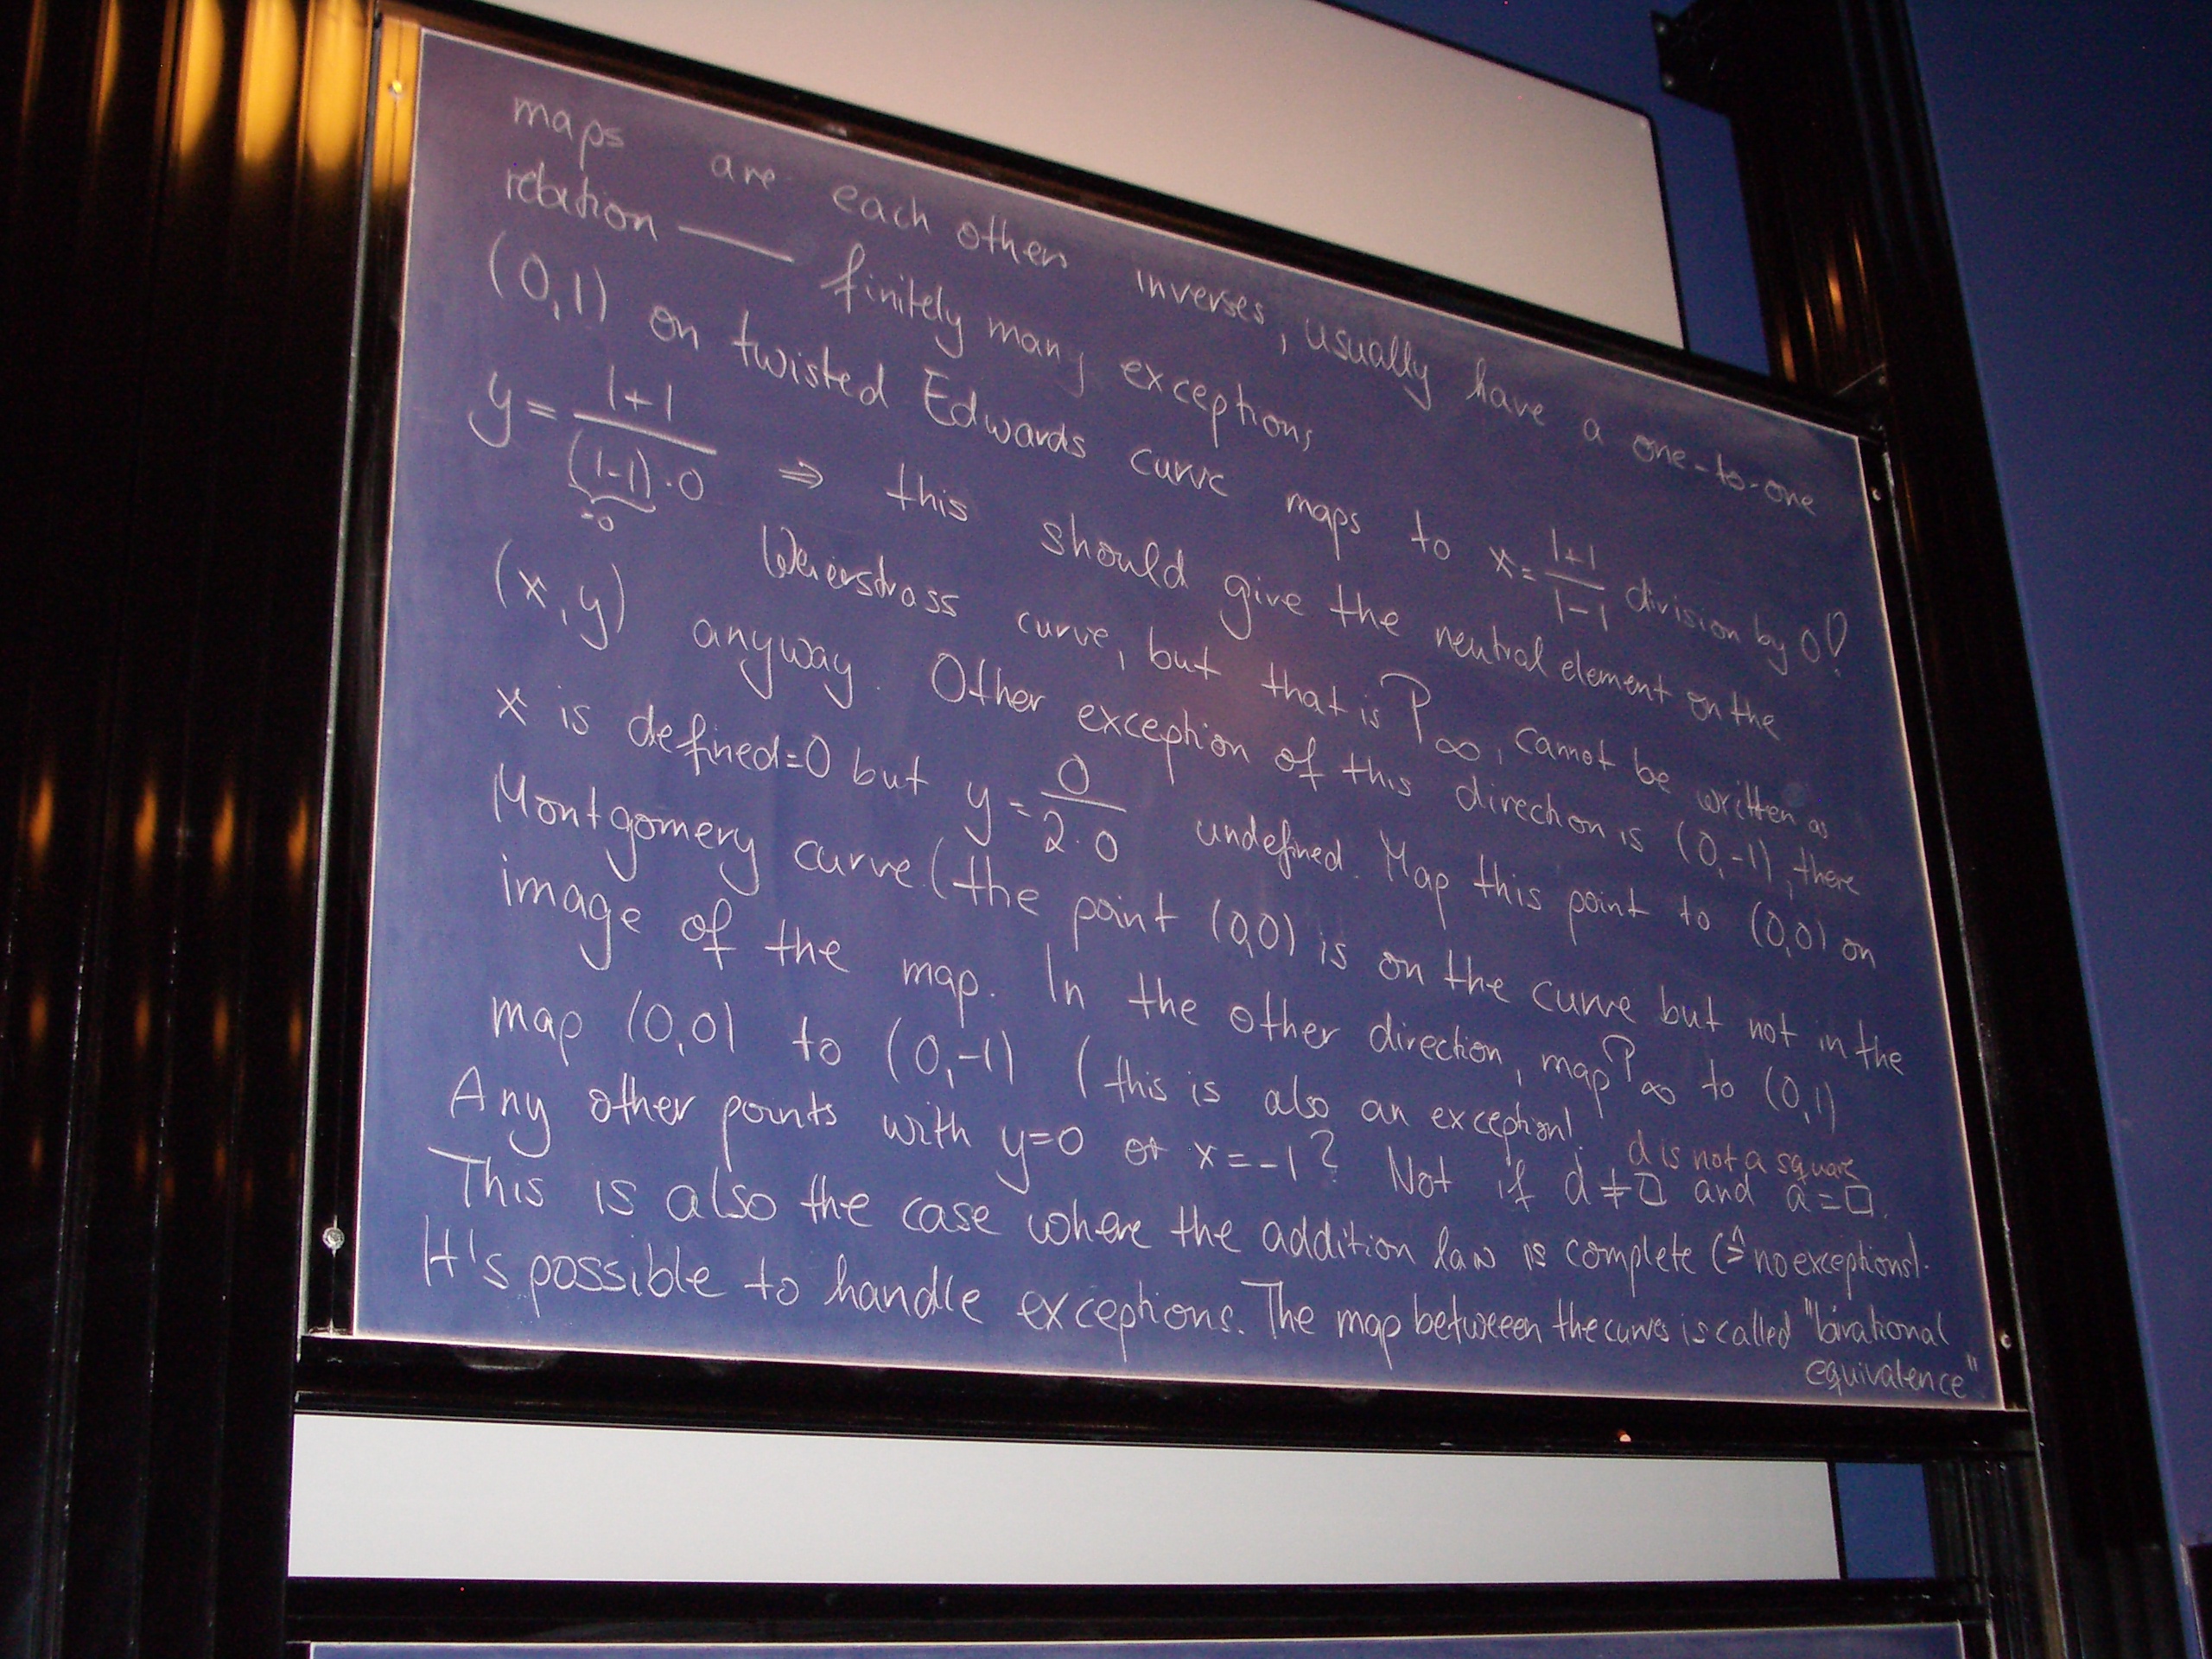 maps are each others inverses, usually have a one-to-one
relation — finitely many exceptions
(0,1) on twisted Edwards curve maps to x = (1+1)/(1-1) division by 0!
y = (1+1)/((1-1)·0) ⇒ this should give the neutral element on the
=0
Weierstrass curve, but that is P∞, cannot be written as
(x,y) anyway. Other exception of this direction is (0,-1), there
x is defined=0 but y = 0/(2·0) undefined. Map this point to (0,0) on
Montgomery curve (the point (0,0) is on the curve but not in the
image of the map. In the other direction, map P∞ to (0,1)
map (0,0) to (0,-1) (this is also an exception!
d is not a square
Any other points with y=0 or x=-1? Not if d≠□ and a=□.
This is also the case where the addition law is complete (≙ no exceptions).
It's possible to handle exceptions. The map betweeen the curves is called "birational
equivalence"